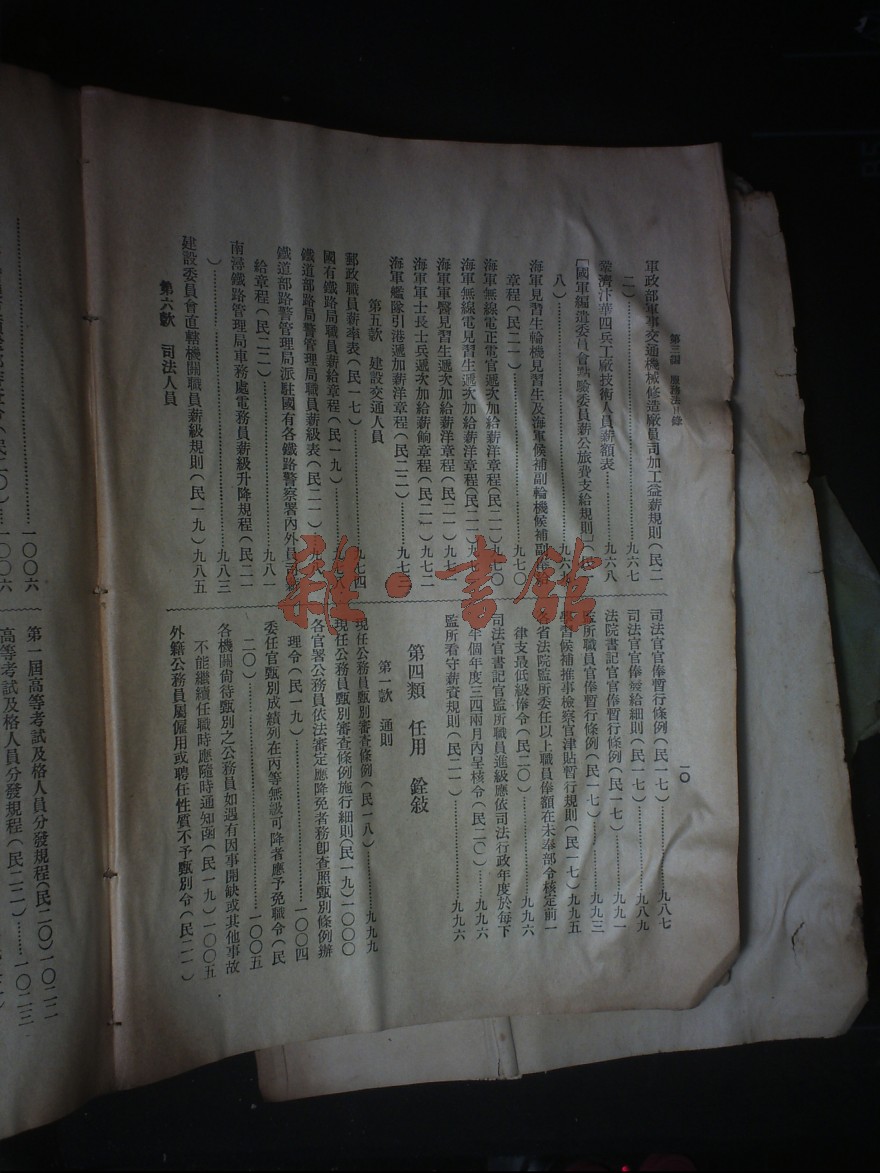 第三編
軍政部軍事交通機械修造廠員司加工益薪規則（民二
二）⋯⋯九六七
鞏濟汴華四兵工廠技術人員薪額表⋯⋯九六八
〔國軍編遣委員會點驗委員薪公旅費支給規則〕（民一
八）⋯⋯九六九
海軍見習生輪機見習生及海軍候補副輪機候補副
章程（民二一）⋯⋯九七〇
海軍無線電正電官遞次加給薪洋章程（民二一）九七〇
海軍無線電見習生遞次加給薪洋章程（民二一）九七
海軍軍醫見習生遞次加給薪洋章程（民二一）九七
海軍軍士長士兵遞次加給薪餉章程（民二一）九七二
海軍艦隊引港遞加薪洋章程（民二二）⋯⋯九七三
第五款　建設交通人員
郵政職員薪率表（民一七）⋯⋯九七四
國有鐵路局職員薪給章程（民一九）⋯⋯九七八
鐵道部路警管理局職員薪級表（民二一）九八
鐵道部路警管理局派駐國有各鐵路警察署內外員司薪
給章程（民二二）⋯⋯九八一
南潯鐵路管理局車務處電務員薪級升降規程（民二一
）⋯⋯九八三
建設委員會直轄機關職員薪級規則（民一九）九八五
第六款　司法人員
一〇
司法官官俸暫行條例（民一七）⋯⋯九八七
司法官官俸發給細則（民一七）⋯⋯九八九
法院書記官官俸暫行條例（民一七）⋯⋯九九一
監所職員官俸暫行條例（民一七）⋯⋯九九三
學習候補推事檢察官津貼暫行規則（民一七）九九五
各省法院監所委任以上職員俸額在未奉部令核定前一
律支最低級俸令（民二〇）⋯⋯九九六
司法官書記官監所職員進級應依司法行政年度於每下
半個年度三四兩月內呈核令（民二〇）⋯⋯九九六
監所看守薪資規則（民二一）⋯⋯九九六
第四類　任用　銓敍
第一款　通則
現任公務員甄別審查條例（民一八）⋯⋯九九九
現任公務員甄別審查條例施行細則（民一九）一〇〇〇
各官署公務員依法審定應降免者務卽查照甄別條例辦
理令（民一九）⋯⋯一〇〇四
委任官甄別成績列在丙等無級可降者應予免職令（民
二〇）⋯⋯一〇〇五
各機關尙待甄別之公務員如遇有因事開缺或其他事故
不能繼續任職時應隨時通知函（民一九）一〇〇五
外籍公務員屬僱用或聘任性質不予甄別令（民二一）
⋯⋯一〇〇六
第一屆高等考試及格人員分發規程（民二〇）一〇二二
高等考試及格人員分發規程（民二二）⋯⋯一〇二三
雜·書館